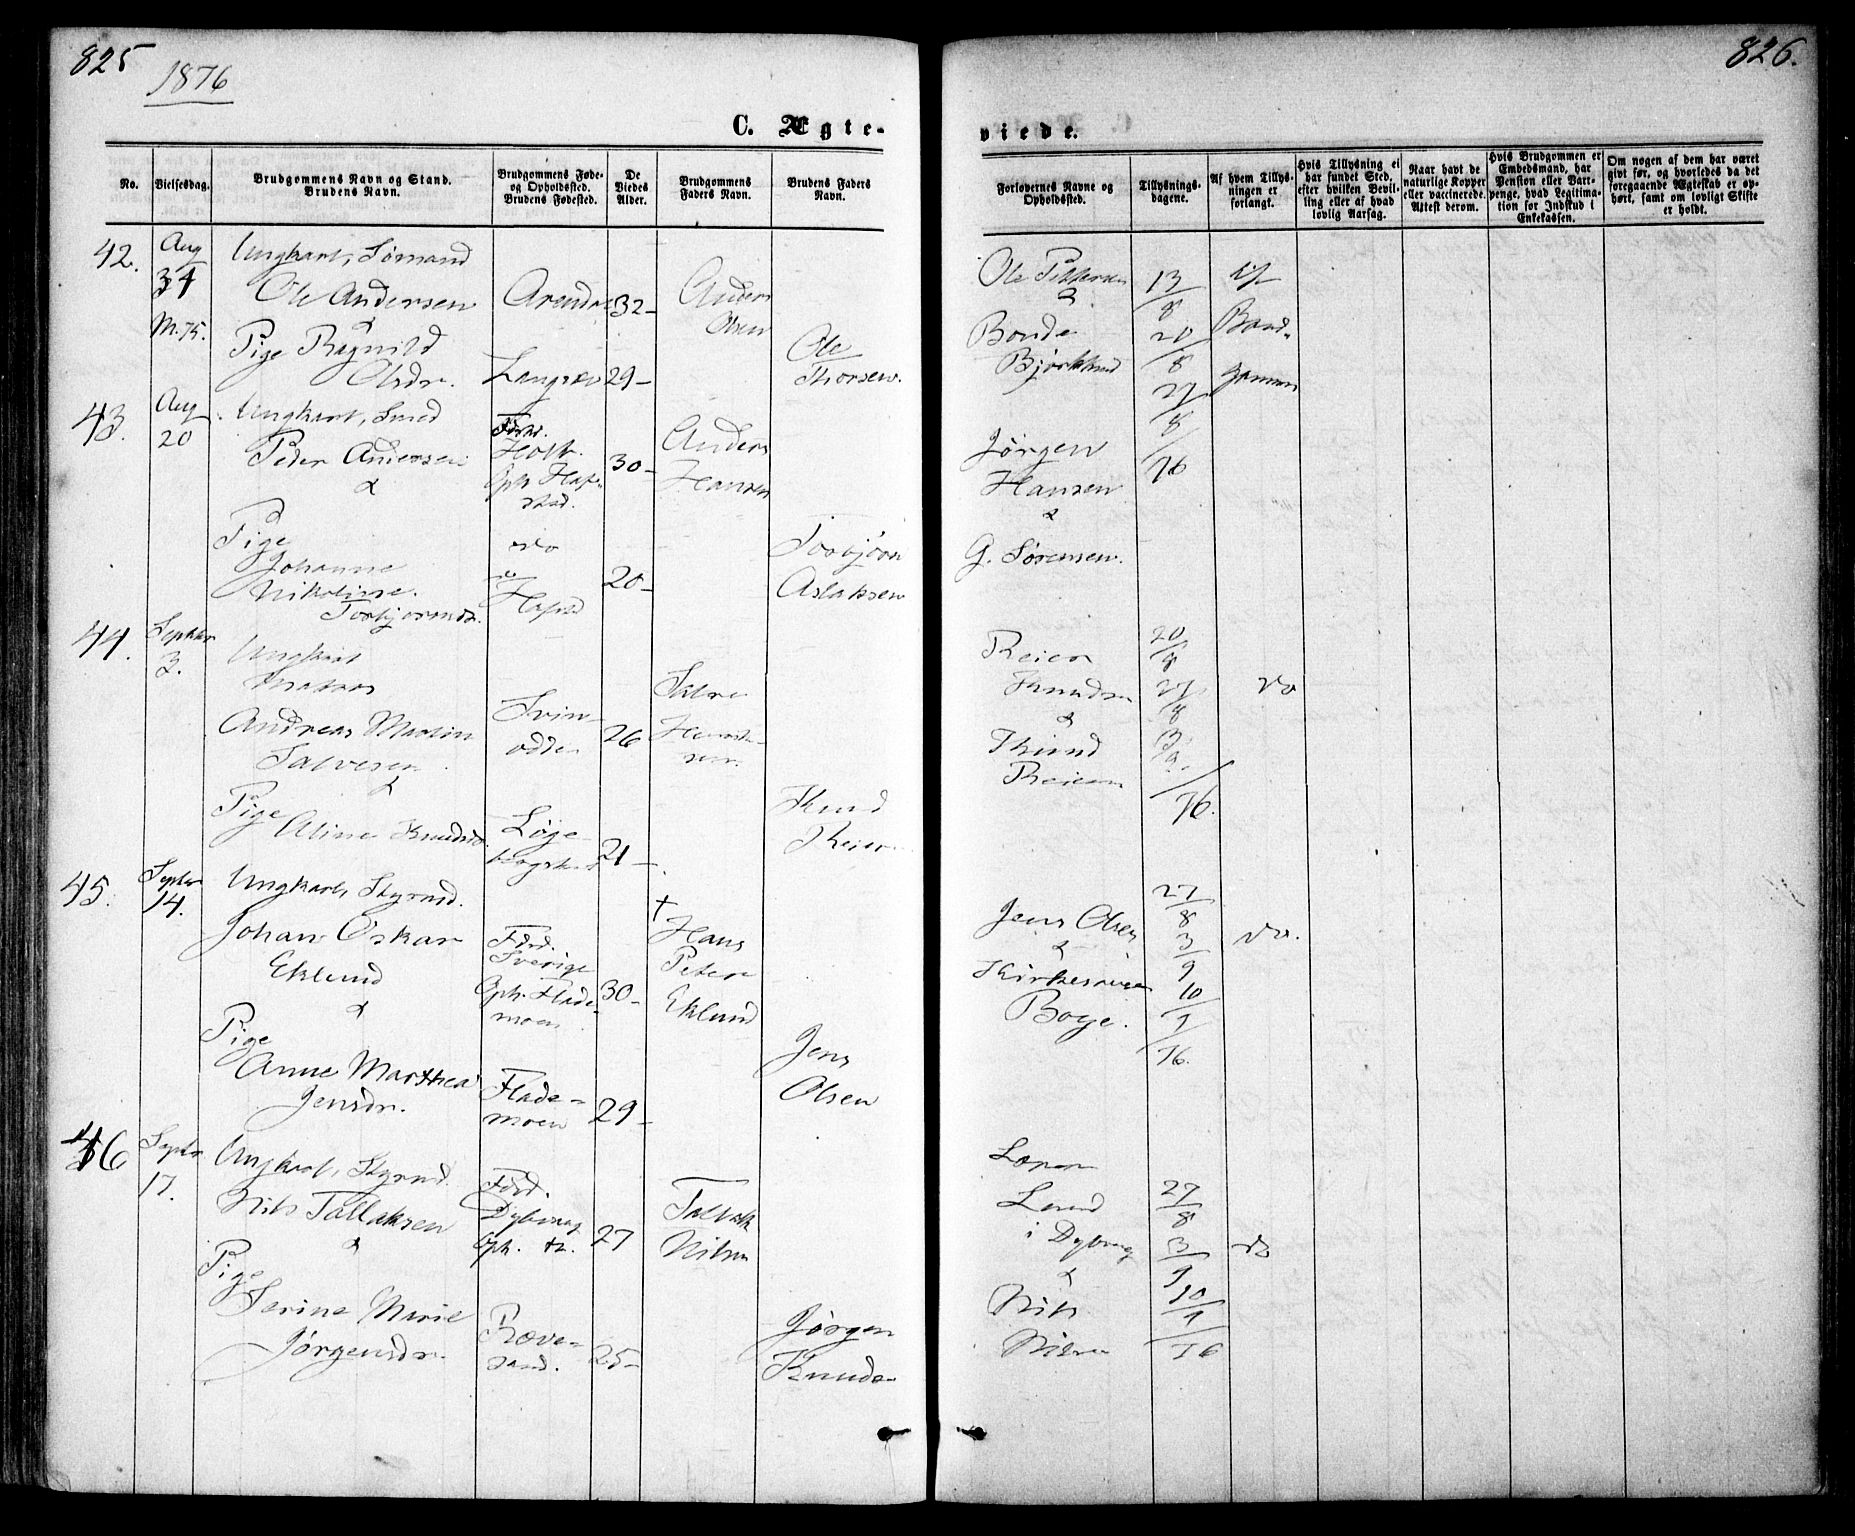 825
1876
C. Ægte-
No.
Vielsesdag.
Brudgommens Navn og Stand.
Brudens Navn.
Brudgommens Føde-
og Opholdsted.
Brudens Fødested.
De
Viedes
Alder.
Brudgommens
Faders Navn.
Brudens Faders
Navn.
42.
Aug
31
M.75.
Ungkarl, Sømand
Ole Andersen
&
Pige Ragnild
Olsdr.
Arendal
32-
29-
Anders
Olsen
Ole
Thorsen.
43.
Aug
20
Ungkarl, Smed
Peder Andersen
&
Pige
Johanne
Nikoline
Torbjørnsdr.
Holt.
30-
do
20-
Anders
Hansen
Torbjørn
Aslaksen
44.
Septbr
3.
Ungkarl
Andreas Martin
Salvesen
&
Pige
Aline Knudsdr.
Svin-
odden
26
21-
Knud
Reier
45.
Septbr
14.
Ungkarl, Styrmd.
Johan Oskar
Eklund
&
Pige
Anne Marthea
Jensdr.
Fdsd.
Sverige
Oph. Flade-
moen
30-
Flade-
moen
29-
†
Hans
Peter
Eklund
Jens
Olsen
46
Septbr.
17.
Ungkarl, Styrmd.
Nils Tallaksen
&
Pige
Serine Marie
Jørgensdr.
Fdsd.
Dybvaag
27
Ræve-
sand.
25-
Tallak
Nilsen
Jørgen
Knuds-
826.
viede.
Forlovernes Navne og
Opholdsted.
Tillysnings-
dagene.
Af hvem Tillys-
ningen er
forlangt.
Hvis Tillysning ei
har fundet Sted,
efter hvilken Bevil-
ling eller af hvad
lovlig Aarsag.
Naar havt de
naturlige Kopper
eller vaccinerede.
Attest derom.
Hvis Brudgommen er
Embedsmand, har
Pension eller Vart-
penge, hvad Legitima-
tion for Indskud i
Enkekassen.
Om nogen af dem har været
givt før, og hvorledes da det
foregaaende Ægteskab er op-
hørt, samt om lovligt Skifte
er holdt.
Ole Pettersen
&
Bonde
Bjorklund
13/8
20/8
27/8
76
Af
Brud-
gommen
Jørgen
Hansen
&
G. Sørensen.
Reier
Knudsen
&
Knud
Reiersen
20/8
27/8
3/9.
76.
do
Jens Olsen
&
Boye.
27/8
3/9
10/9
76.
do.
i Dybvaag
&
Nils
Nilsen
27/8
3/9
10/9
76
do